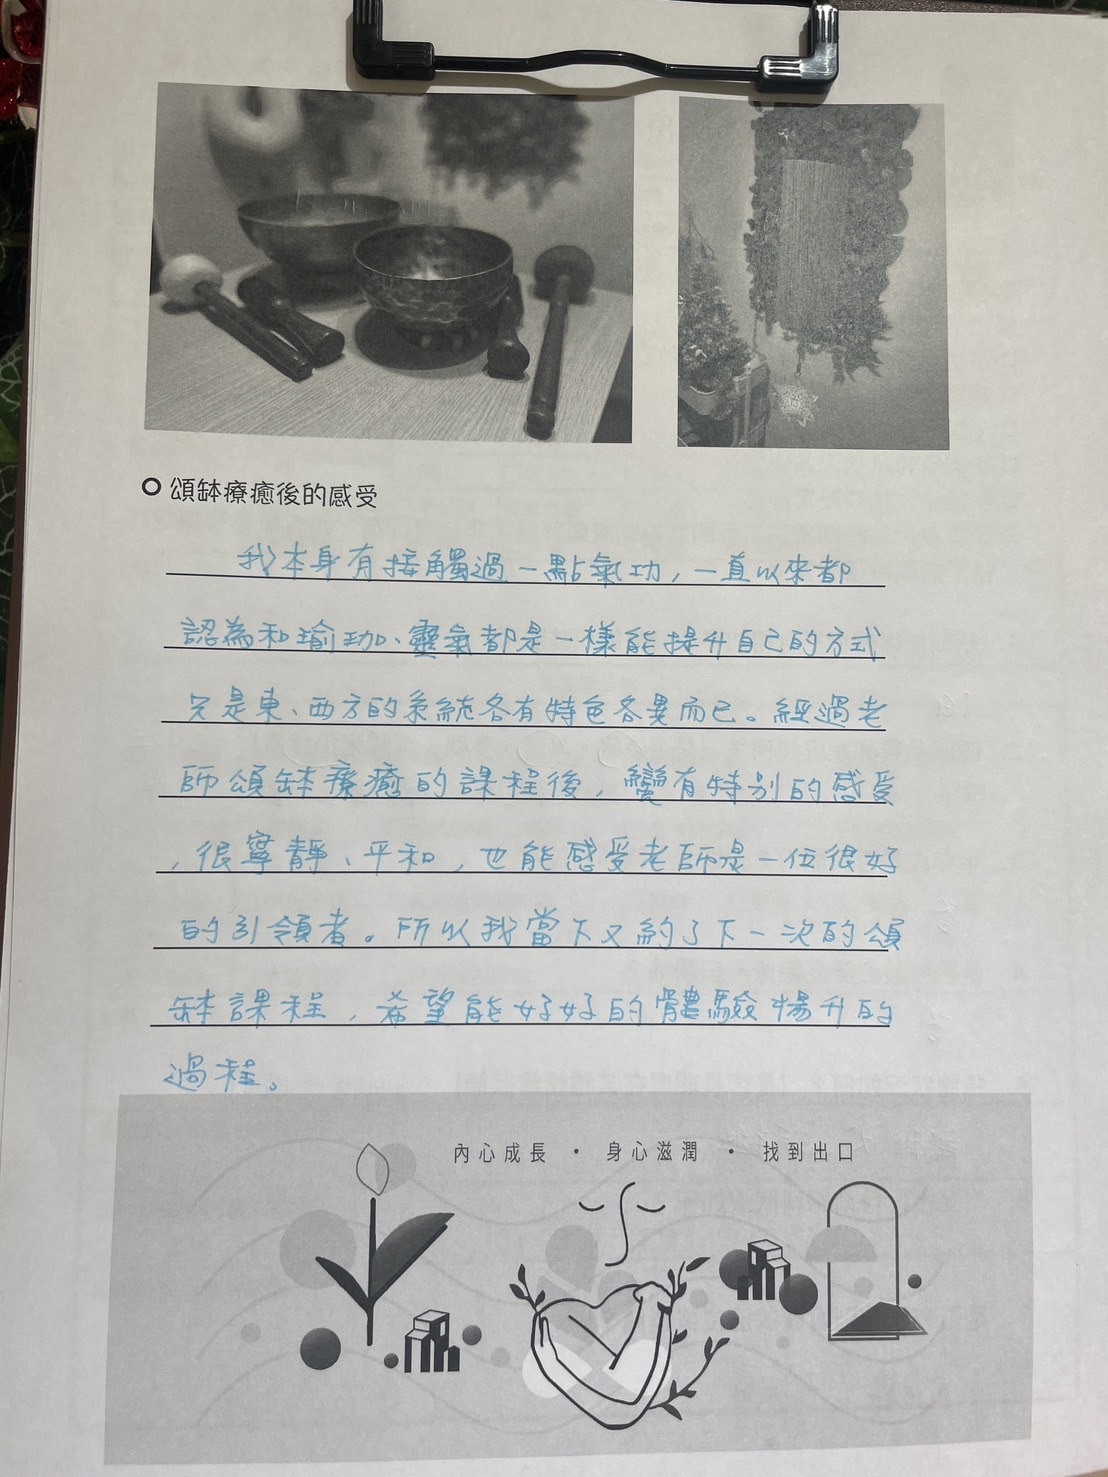 頌缽療癒後的感受
我本身有接觸過一點氣功,一直以來都
認為和瑜珈、靈氣都是一樣能提升自己的方式
只是東、西方的系統各有特色各異而已。經過老
師頌缽療癒的課程後,蠻有特別的感受
,很寧靜、平和,也能感受老師是一位很好
的引領者。所以我當下又約了下一次的頌
缽課程,希望能好好的體驗揚升的
過程。
內心成長 • 身心滋潤 • 找到出口